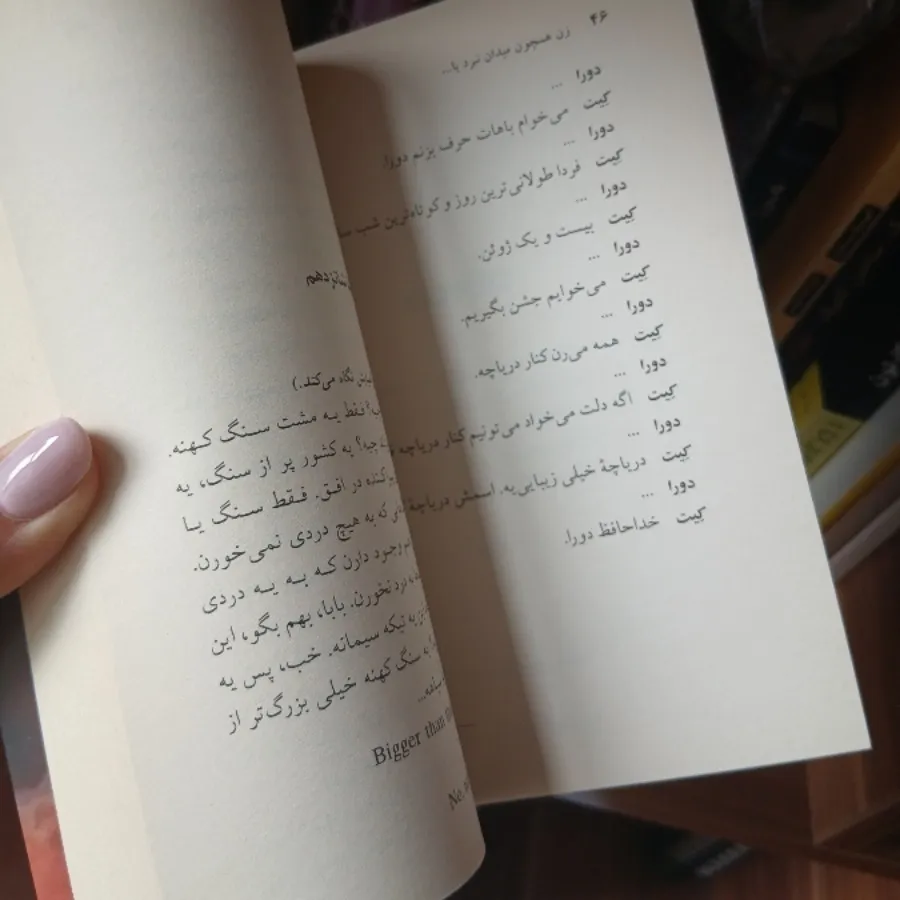 ۴۶ زن همچون میدان نبرد با...
دورا ...
کِیت می‌خوام باهات حرف بزنم دورا.
دورا ...
کِیت فردا طولانی‌ترین روز و کوتاه‌ترین شب
دورا ...
کِیت بیست و یک ژوئن.
دورا ...
کِیت می‌خوایم جشن بگیریم.
دورا ...
کِیت همه می‌رن کنار دریاچه.
دورا ...
کِیت اگه دلت می‌خواد می‌تونیم کنار دریاچه
دورا ...
کِیت دریاچهٔ خیلی زیبایی‌یه. اسمش دریاچهٔ
دورا ...
کِیت خداحافظ دورا.
نگاه می‌کند.)
فقط یه مشت سنگ کهنه.
چیه؟ یه کشور پر از سنگ، یه
در افق. فقط سنگ یا
که به هیچ دردی نمی‌خورن.
وجود دارن که به یه دردی
درد نخورن. بابا، بهم بگو، این
یه تیکه سیمانه. خب، پس یه
سنگ کهنه خیلی بزرگ‌تر از
Bigger than